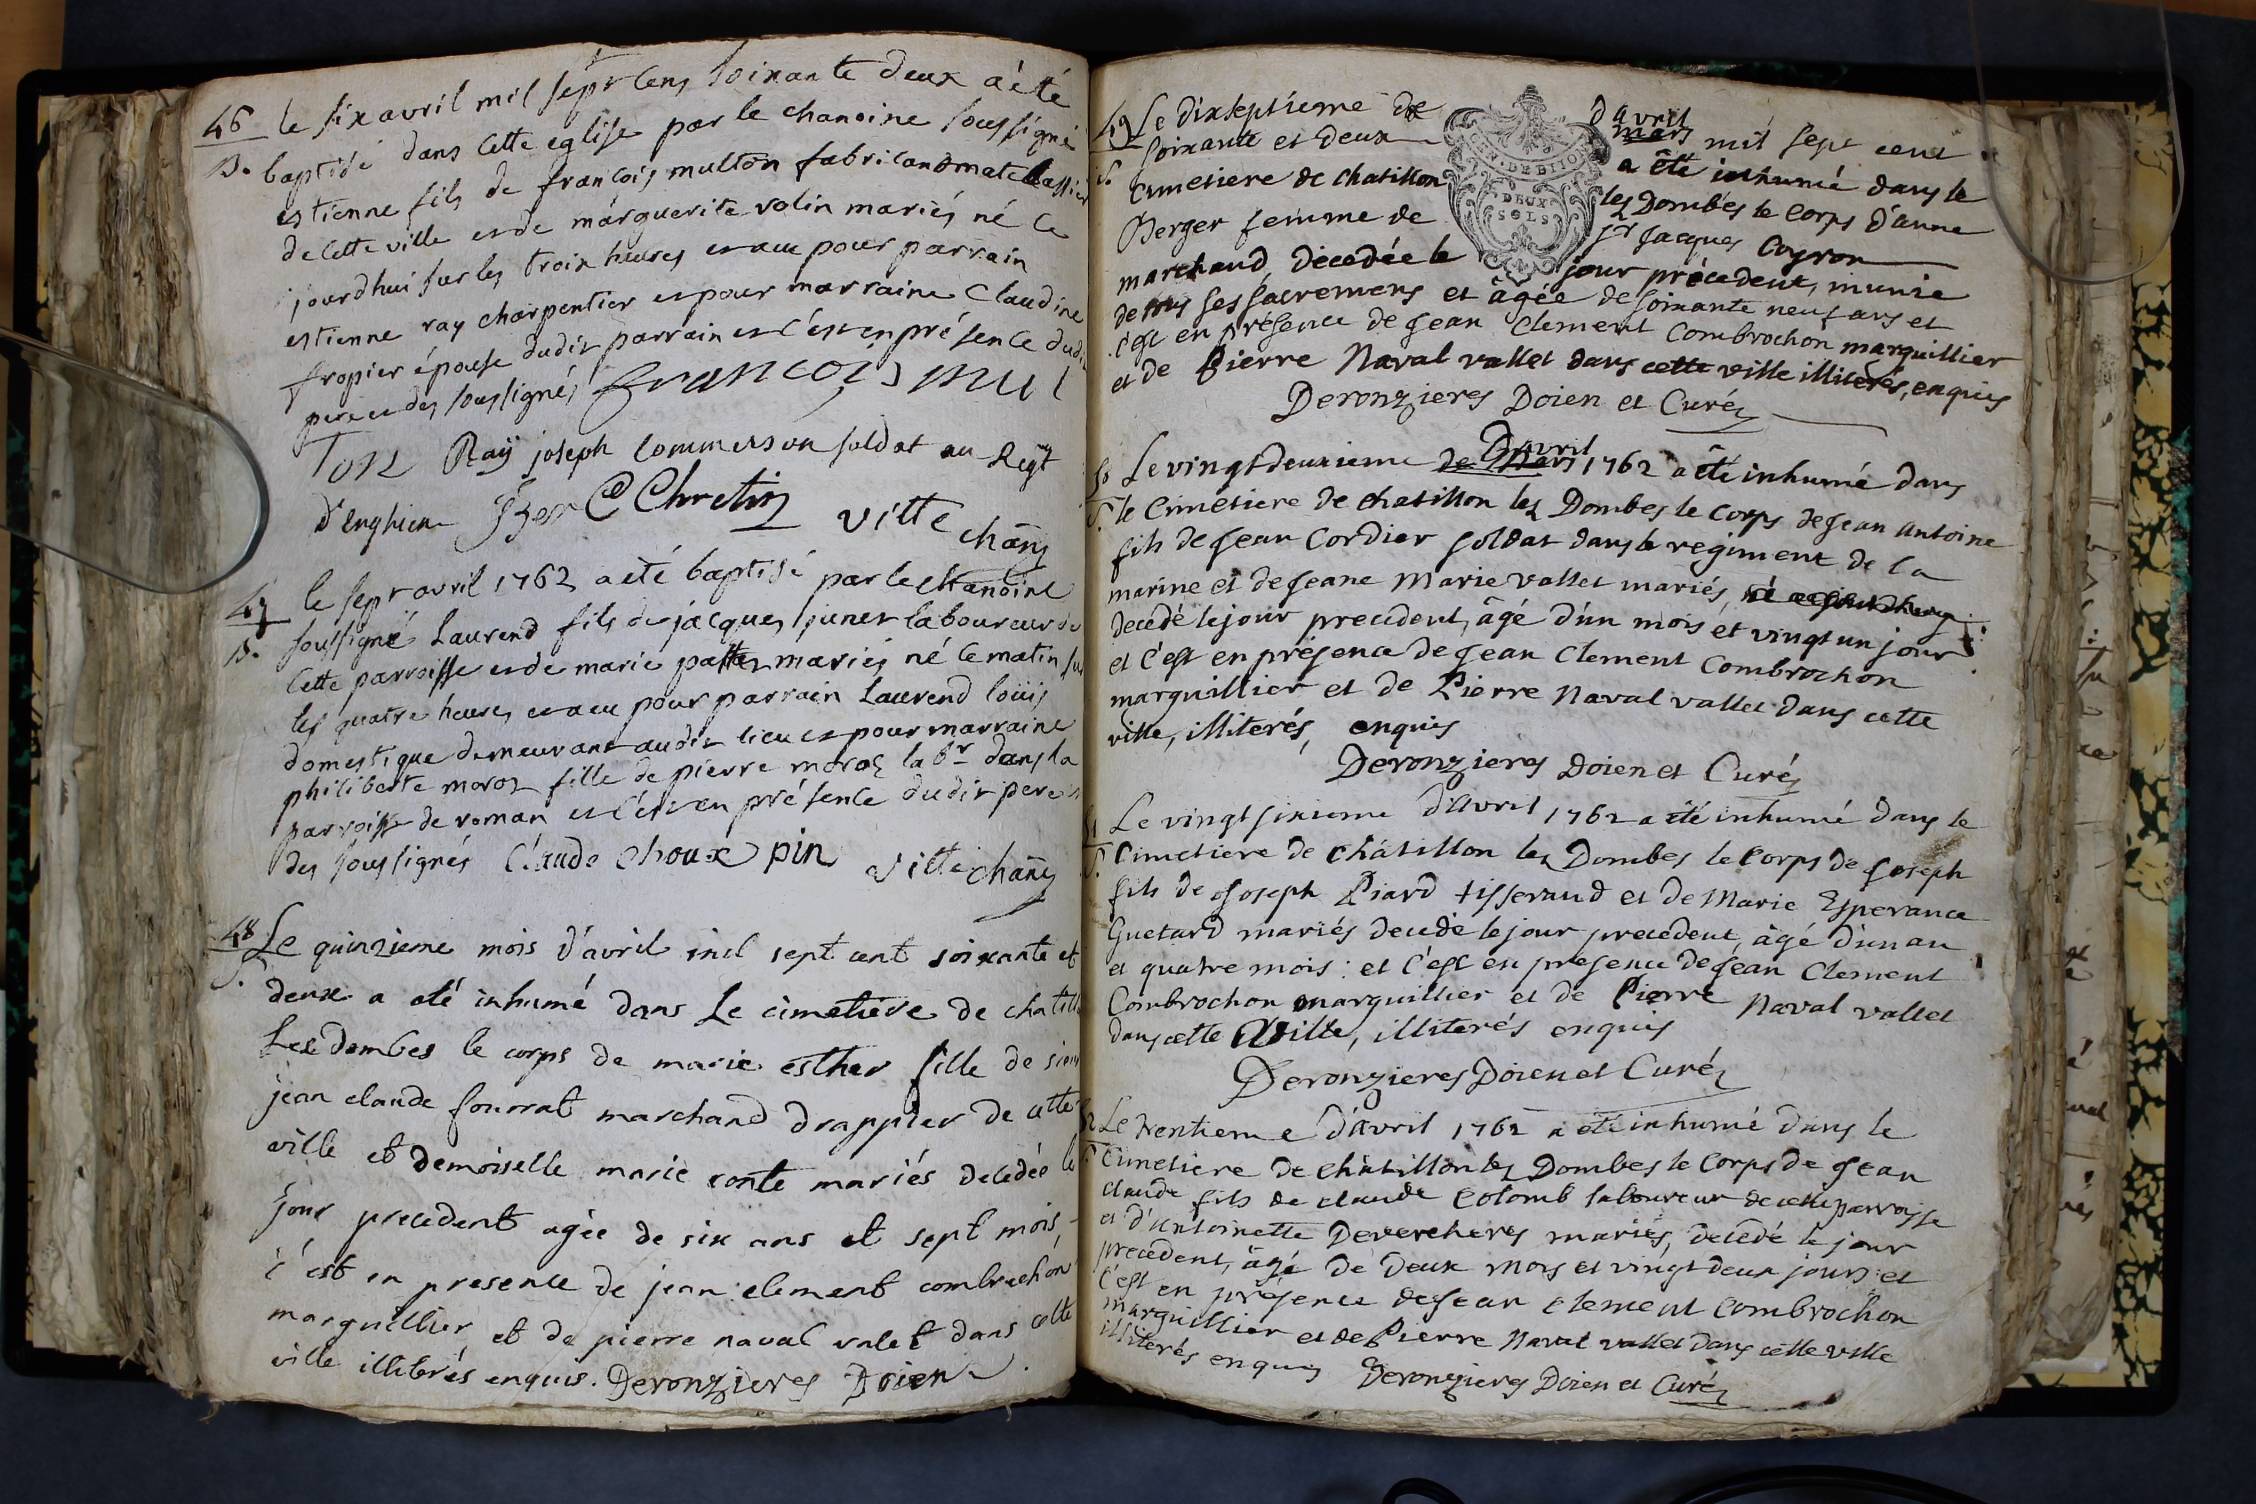 46 le six avril mil sept cens soixante deux a été
B. baptisé dans cette eglise par le chanoine soussigné
estienne fils de françois multon fabricand matelassier
de cette ville et de marguerite volin mariés né ce
jourd'hui sur les trois heures et a eu pour parrain
estienne ray charpentier et pour marraine Claudine
fropier épouse dudit parrain et c'est en présence dudit
pere et des soussignés françois mul
ton Raÿ joseph Commerson soldat au Regt
d'enghien Chretin vitte chañe
47 le sept avril 1762 a été baptisé par le chanoine
B. soussigné Laurend fils de jacques junet laboureur de
cette parroisse et de marie mariés né ce matin sur
les quatre heures et a eu pour parrain Laurend loüis
domestique demeurant audit lieu et pour marraine
philiberte moroz fille de pierre moroz labr dans la
parroisse de roman et c'est en présence dudit pere et
des soussignés Claude Choux pin vitte chañe
48 Le quinzieme mois d'avril mil sept cent soixante et
S. deux a eté inhumé dans Le cimetiere de chatillon
Les dombes le corps de marie esther fille de sieur
jean claude fourrat marchand drappier de cette
ville et demoiselle marie conte mariés decedée le
jour precedent agée de six ans et sept mois,
c'est en presence de jean clement combrochon
marguillier et de pierre naval valet dans cette
ville illiterés enquis. Deronzieres Doien
49 Le dixseptieme de d'avril mars mil sept cent
S. soixante et deux a été inhumé dans le
cimetiere de chatillon les Dombes le corps d'anne
Berger femme de sr Jacques Coyron
marchand, decedée le jour précedent, munie
de tous ses sacremens et âgée de soixante neuf ans et
c'est en présence de Jean Clement Combrochon marguillier
et de Pierre Naval vallet dans cette ville illiterés, enquis
EN. DE DIJON
DEUX
SOLS
Deronzieres Doien et Curé
50 Le vingtdeuxieme de Mars D'avril 1762 a été inhumé dans
S. le Cimetiere de chatillon les Dombes le corps de Jean Antoine
fils de Jean Cordier soldat dans le regiment de la
marine et de Jeane Marie vallet mariés,
decedé le jour precedent, âgé d'un mois et vingt un jour
et c'est en présence de Jean Clement Combrochon
marguillier et de Pierre Naval vallet dans cette
ville, illiterés, enquis
Deronzieres Doien et Curé
51 Le vingt sixieme d'avril 1762 a été inhumé dans le
S. Cimetiere de châtillon les Dombes le corps de Joseph
fils de Joseph Piard tisserand et de Marie Esperance
Guetard mariés decedé le jour precedent, âgé d'un an
et quatre mois : et c'est en presence de Jean Clement
Combrochon marguillier et de Pierre Naval vallet
dans cette ville, illiterés enquis
Deronzieres Doien et Curé
52 Le trentieme d'avril 1762 a été inhumé dans le
S. Cimetiere de chatillon les Dombes le Corps de Jean
claude fils de claude Colomb laboureur de cette parroisse
et d'Antoinette Devercheres mariés, decedé le jour
precedent, âgé de deux mois et vingt deux jours et
c'est en présence de Jean Clement Combrochon
marguillier et de Pierre Naval vallet dans cette ville
illiterés enquis Deronzieres Doien et Curé